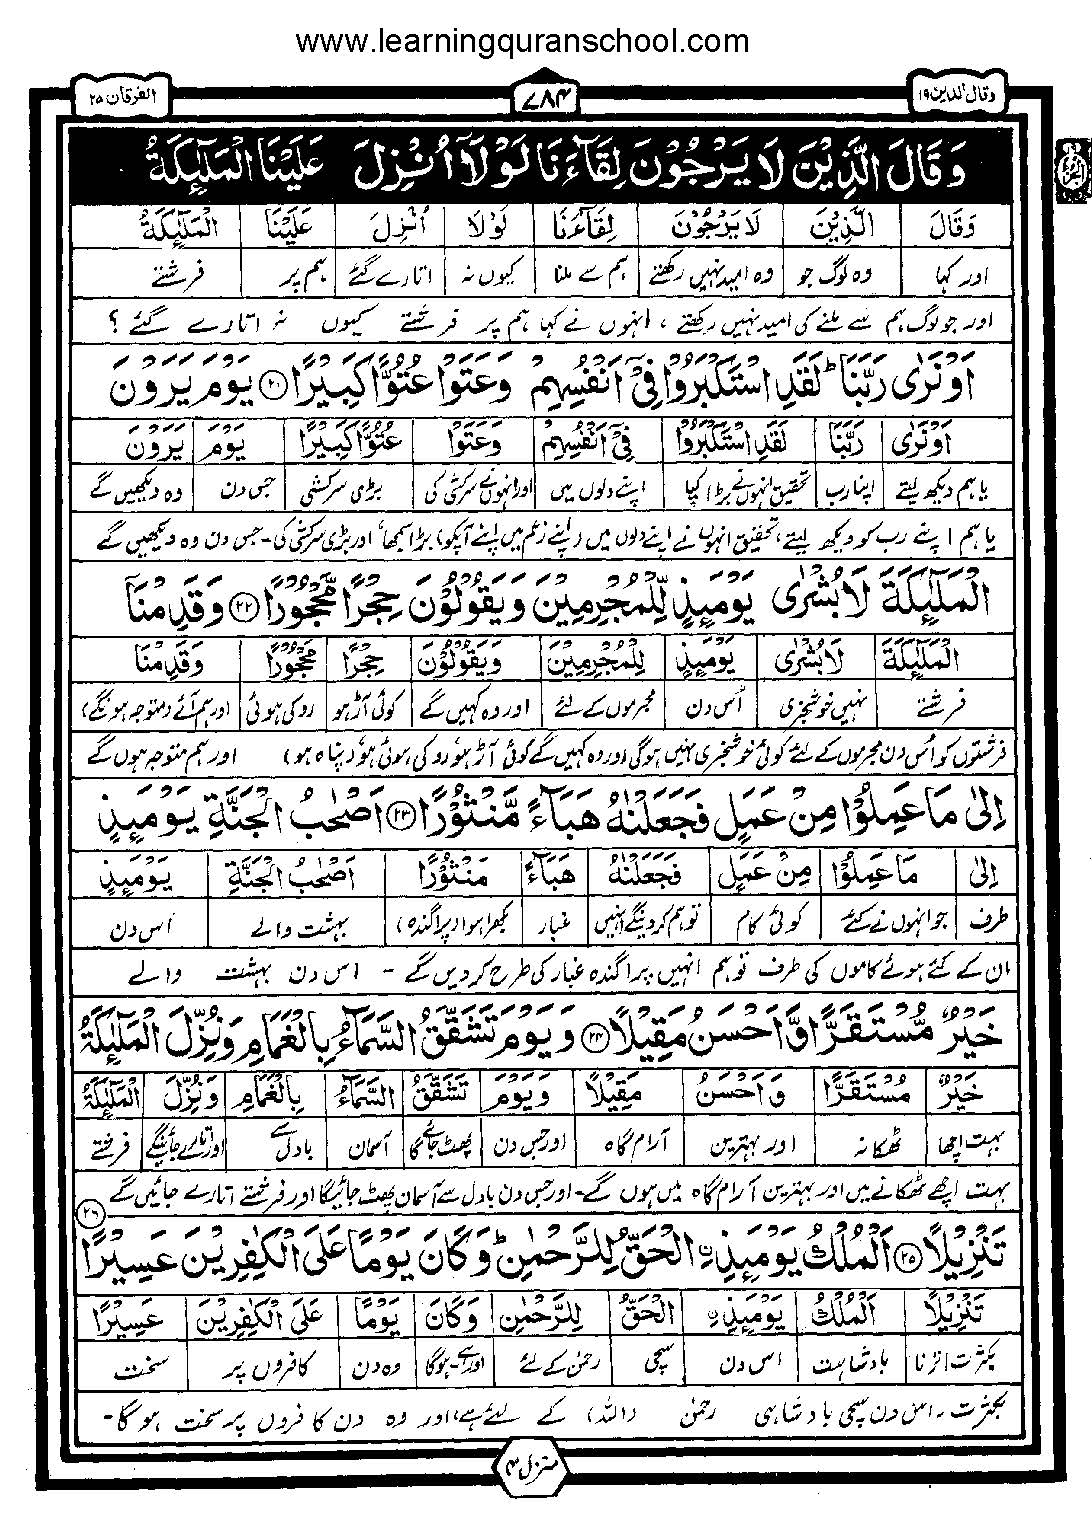 www.learningquranschool.com
وقال الذین ۱۹ ۷۸۴ الفرقان ۲۵
وَقَالَ الَّذِيْنَ لَا يَرْجُوْنَ لِقَآءَنَا لَوْلَآ اُنْزِلَ عَلَيْنَا الْمَلٰٓئِكَةُ
وَقَالَ الَّذِيْنَ لَا يَرْجُوْنَ لِقَآءَنَا لَوْلَا اُنْزِلَ عَلَيْنَا الْمَلٰٓئِكَةُ
اور کہا وہ لوگ جو وہ امید نہیں رکھتے ہم سے ملنا کیوں نہ اتارے گئے ہم پر فرشتے
اور جو لوگ ہم سے ملنے کی امید نہیں رکھتے ، انہوں نے کہا ہم پر فرشتے کیوں نہ اتارے گئے ؟
اَوْ نَرٰى رَبَّنَا ؕ لَقَدِ اسْتَكْبَرُوْا فِيْٓ اَنْفُسِهِمْ وَعَتَوْا عُتُوًّا كَبِيْرًا ۲۱ يَوْمَ يَرَوْنَ
اَوْ نَرٰى رَبَّنَا لَقَدِ اسْتَكْبَرُوْا فِيْٓ اَنْفُسِهِمْ وَعَتَوْا عُتُوًّا كَبِيْرًا يَوْمَ يَرَوْنَ
یا ہم دیکھ لیتے اپنا رب تحقیق انہوں نے بڑا کیا اپنے دلوں میں اور انہوں نے سرکشی کی بڑی سرکشی جس دن وہ دیکھیں گے
یا ہم اپنے رب کو دیکھ لیتے ، تحقیق انہوں نے اپنے دلوں میں (اپنے زعم میں اپنے آپکو) بڑا سمجھا اور بڑی سرکشی کی - جس دن وہ دیکھیں گے
الْمَلٰٓئِكَةَ لَا بُشْرٰى يَوْمَئِذٍ لِّلْمُجْرِمِيْنَ وَيَقُوْلُوْنَ حِجْرًا مَّحْجُوْرًا ۲۲ وَقَدِمْنَآ
الْمَلٰٓئِكَةَ لَا بُشْرٰى يَوْمَئِذٍ لِلْمُجْرِمِيْنَ وَيَقُوْلُوْنَ حِجْرًا مَّحْجُوْرًا وَقَدِمْنَا
فرشتے نہیں خوشخبری اُس دن مجرموں کے لئے اور وہ کہیں گے کوئی آڑ ہو روکی ہوئی اور ہم آئے (متوجہ ہونگے)
فرشتوں کو اُس دن مجرموں کے لئے کوئی خوشخبری نہیں ہوگی اور وہ کہیں گے کوئی آڑ ہو روکی ہوئی ہو (پناہ ہو) اور ہم متوجہ ہوں گے
اِلٰى مَا عَمِلُوْا مِنْ عَمَلٍ فَجَعَلْنٰهُ هَبَآءً مَّنْثُوْرًا ۲۳ اَصْحٰبُ الْجَنَّةِ يَوْمَئِذٍ
اِلٰى مَا عَمِلُوْا مِنْ عَمَلٍ فَجَعَلْنٰهُ هَبَآءً مَنْثُوْرًا اَصْحٰبُ الْجَنَّةِ يَوْمَئِذٍ
طرف جو انہوں نے کئے کوئی کام تو ہم کردینگے انہیں غبار بکھرا ہوا (پراگندہ) بہشت والے اُس دن
ان کے کئے ہوئے کاموں کی طرف تو ہم انہیں پراگندہ غبار کی طرح کردیں گے - اس دن بہشت والے
خَيْرٌ مُّسْتَقَرًّا وَّاَحْسَنُ مَقِيْلًا ۲۴ وَيَوْمَ تَشَقَّقُ السَّمَآءُ بِالْغَمَامِ وَنُزِّلَ الْمَلٰٓئِكَةُ
خَيْرٌ مُسْتَقَرًّا وَاَحْسَنُ مَقِيْلًا وَيَوْمَ تَشَقَّقُ السَّمَآءُ بِالْغَمَامِ وَنُزِّلَ الْمَلٰٓئِكَةُ
بہت اچھا ٹھکانہ اور بہترین آرام گاہ اور جس دن پھٹ جائے گا آسمان بادل سے اور اتارے جائینگے فرشتے
بہت اچھے ٹھکانے میں اور بہترین آرام گاہ میں ہوں گے - اور جس دن بادل سے آسمان پھٹ جائیگا اور فرشتے اتارے جائیں گے
تَنْزِيْلًا ۲۵ اَلْمُلْكُ يَوْمَئِذِ ۨ الْحَقُّ لِلرَّحْمٰنِ ؕ وَكَانَ يَوْمًا عَلَى الْكٰفِرِيْنَ عَسِيْرًا ۲۶
تَنْزِيْلًا اَلْمُلْكُ يَوْمَئِذِ ۨ الْحَقُّ لِلرَّحْمٰنِ وَكَانَ يَوْمًا عَلَى الْكٰفِرِيْنَ عَسِيْرًا
بکثرت اترنا بادشاہت اس دن سچی رحمٰن کے لئے اور ہے - ہوگا وہ دن کافروں پر سخت
بکثرت - اس دن سچی بادشاہی رحمٰن (اللہ) کے لئے ہے، اور وہ دن کافروں پر سخت ہو گا -
منزل ۴